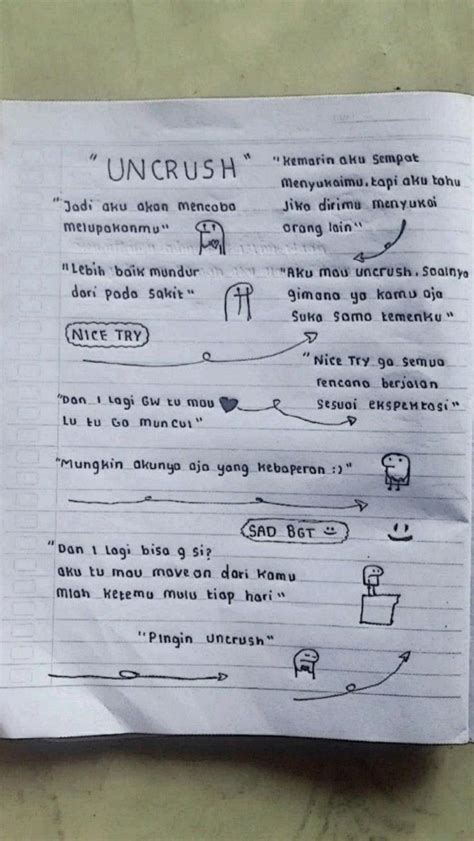 "UNCRUSH"
"Kemarin aku sempat
menyukaimu, tapi aku tahu
Jika dirimu menyukai
orang lain"
"Jadi aku akan mencoba
melupakanmu"
"Lebih baik mundur
dari pada sakit"
"Aku mau uncrush, Soalnya
gimana ya kamu aja
Suka sama temenku"
NICE TRY
"Nice Try ga semua
rencana berjalan
sesuai ekspektasi"
"Dan 1 lagi GW tu mau
Lu tu Go muncul"
"Mungkin akunya aja yang kebaperan :)"
SAD BGT
"Dan 1 lagi bisa g si?
aku tu mau move on dari kamu
mlah ketemu mulu tiap hari"
"Pingin uncrush"